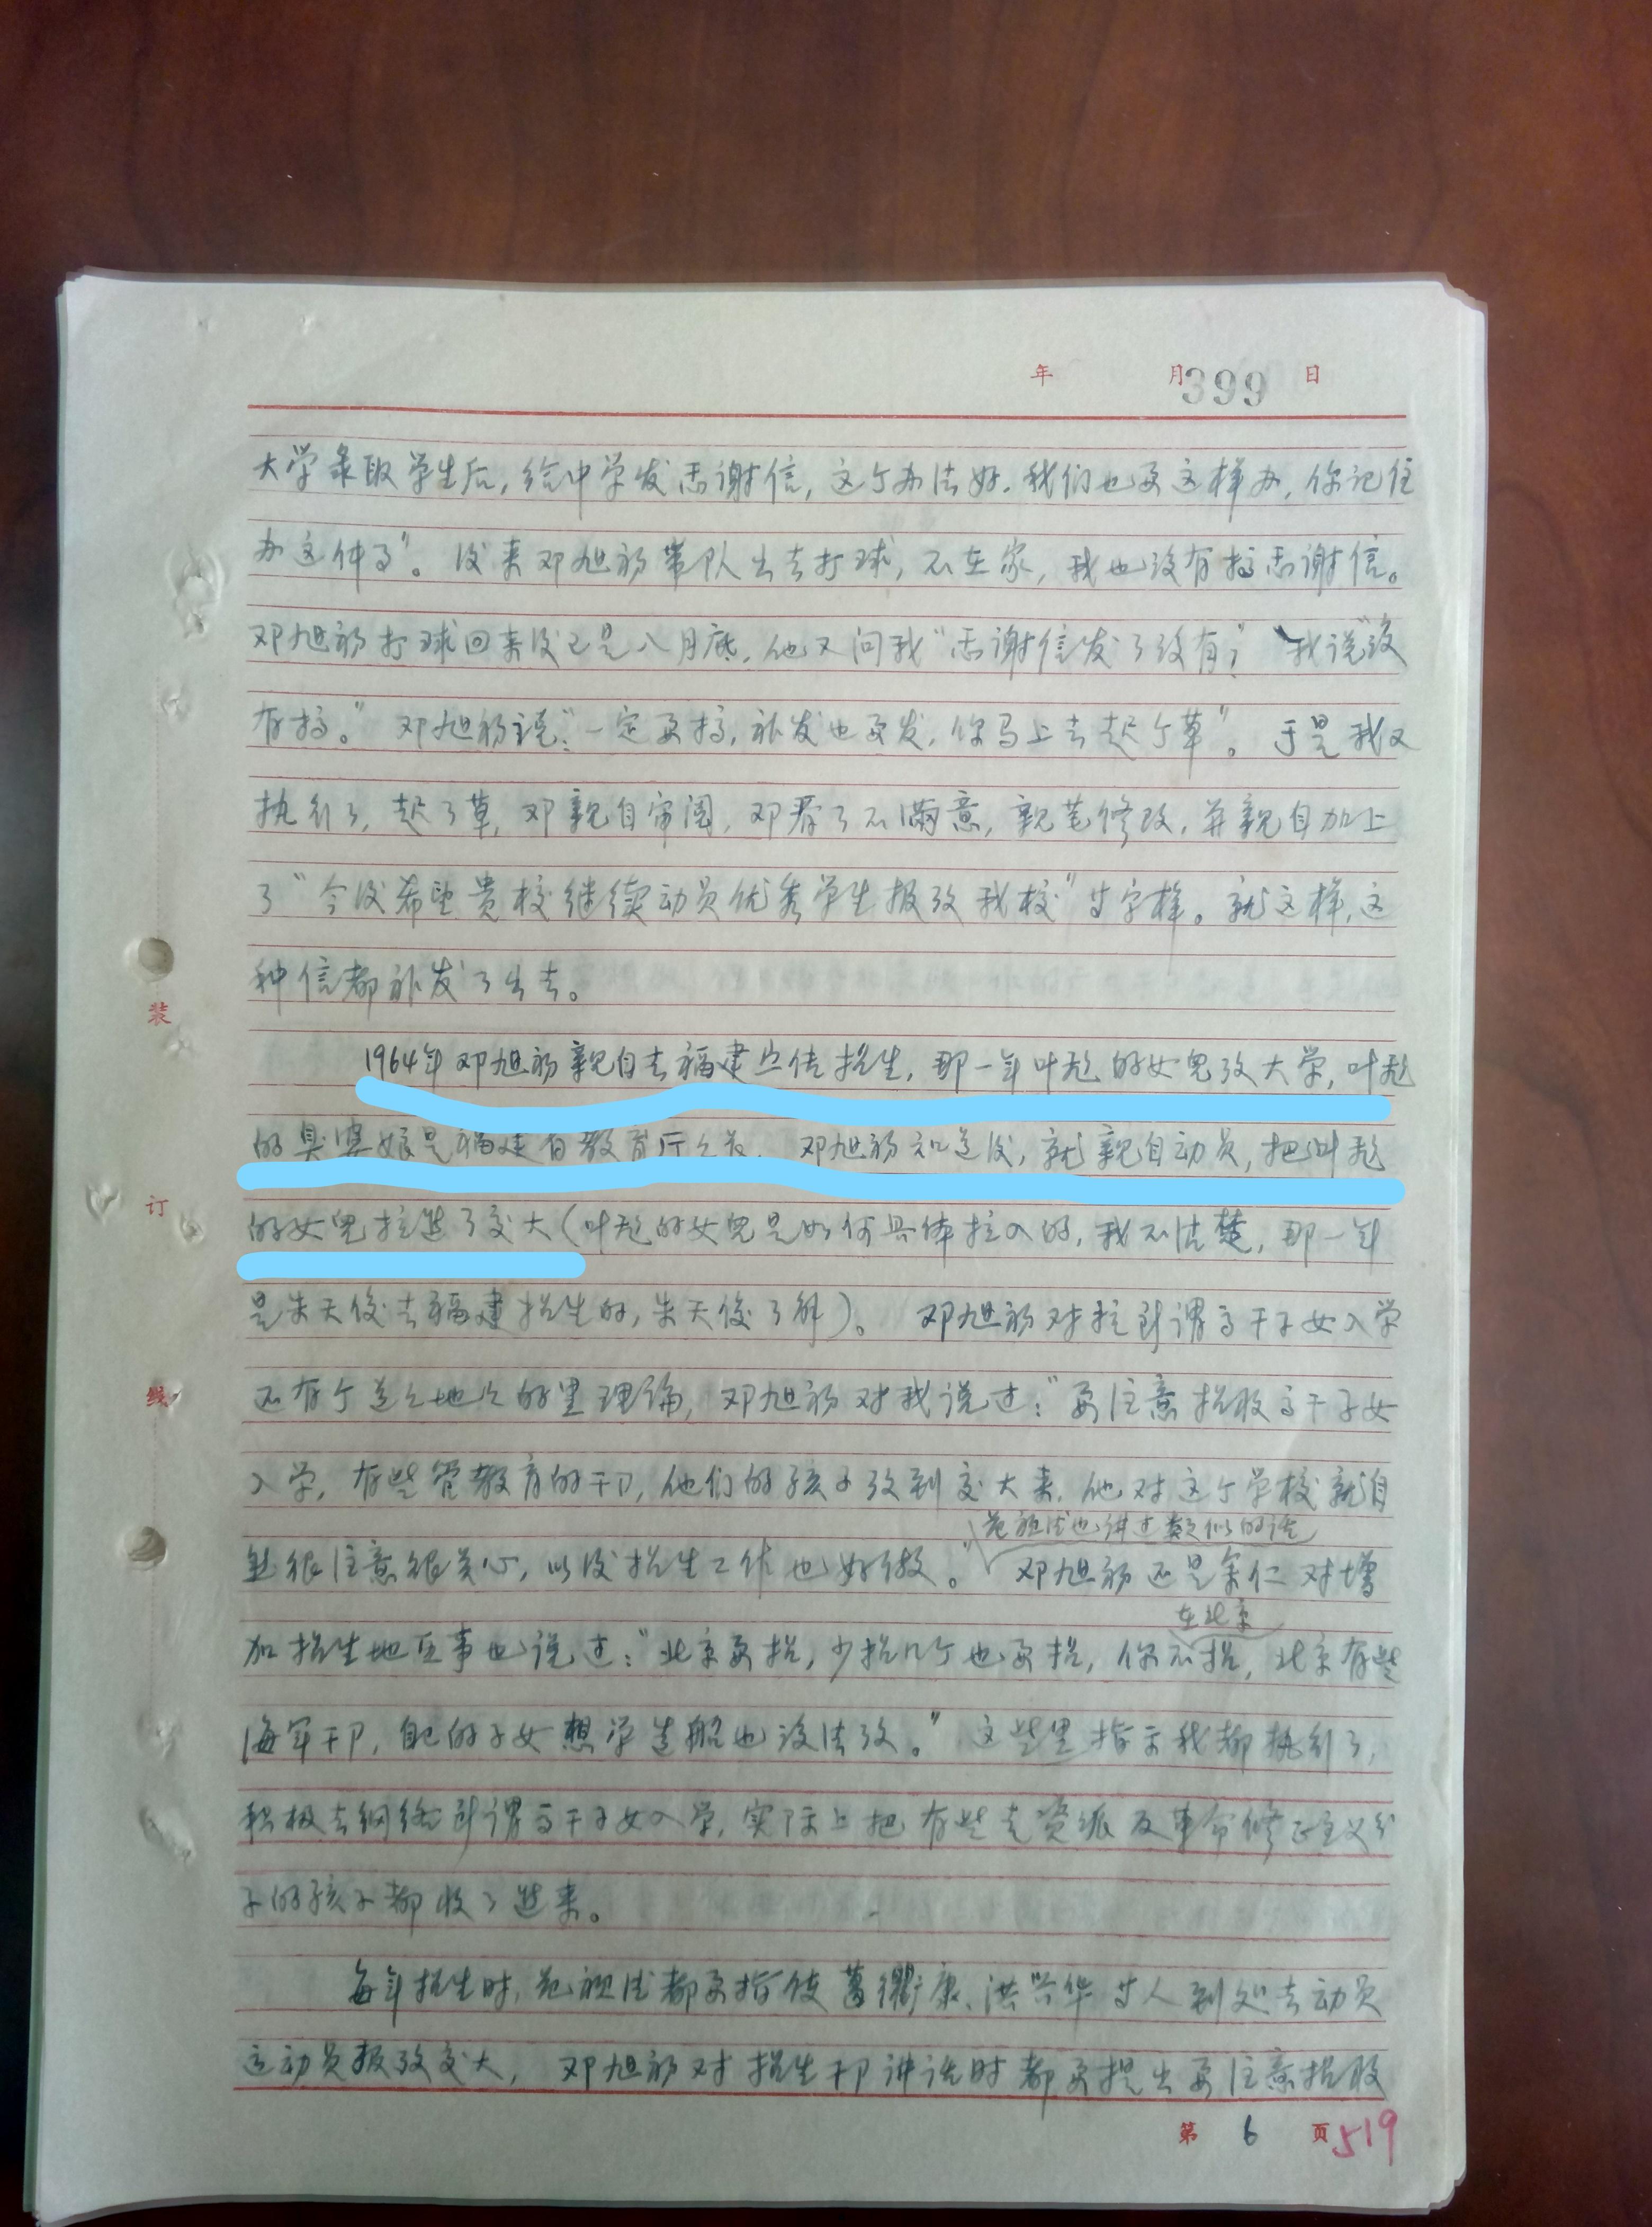 年 月 399 日
大学录取学生后，给中学发感谢信，这个办法好，我们也要这样办，你记住
办这件事”。后来邓旭初带队出去打球，不在家，我也没有搞感谢信。
邓旭初打球回来后已是八月底，他又问我“感谢信发了没有？”我说“没
有搞。”邓旭初说：“一定要搞，补发也要发，你马上去起个草”。于是我又
执行了，起了草，邓亲自审阅，邓看了不满意，亲笔修改，并亲自加上
了“今后希望贵校继续动员优秀学生报考我校”等字样。就这样，这
种信都补发了出去。
1964年邓旭初亲自去福建宣传招生，那一年叶飞的女儿考大学，叶飞
的臭婆娘是福建省教育厅厅长，邓旭初知道后，就亲自动员，把叶飞
的女儿拉进了交大（叶飞的女儿是如何具体拉入的，我不清楚，那一年
是朱天俊去福建招生的，朱天俊了解）。邓旭初对拉所谓高干子女入学
还有个道道地地的黑理论，邓旭初对我说过：“要注意招收高干子女
入学，有些管教育的干部，他们的孩子考到交大来，他对这个学校就自
范祖德也讲过类似的话
然很注意很关心，以后招生工作也好做。”邓旭初还是余仁对增
在北京
加招生地区事也说过：“北京要招，少招几个也要招，你不招，北京有些
海军干部，自己的子女想学造船也没法考。”这些黑指示我都执行了，
积极去网络所谓高干子女入学，实际上把有些走资派反革命修正主义分
子的孩子都收了进来。
每年招生时，范祖德都要指使 康、洪兴华等人到处去动员
运动员报考交大，邓旭初对招生干部讲话时都要提出要注意招收
第 6 页 519
装
订
线